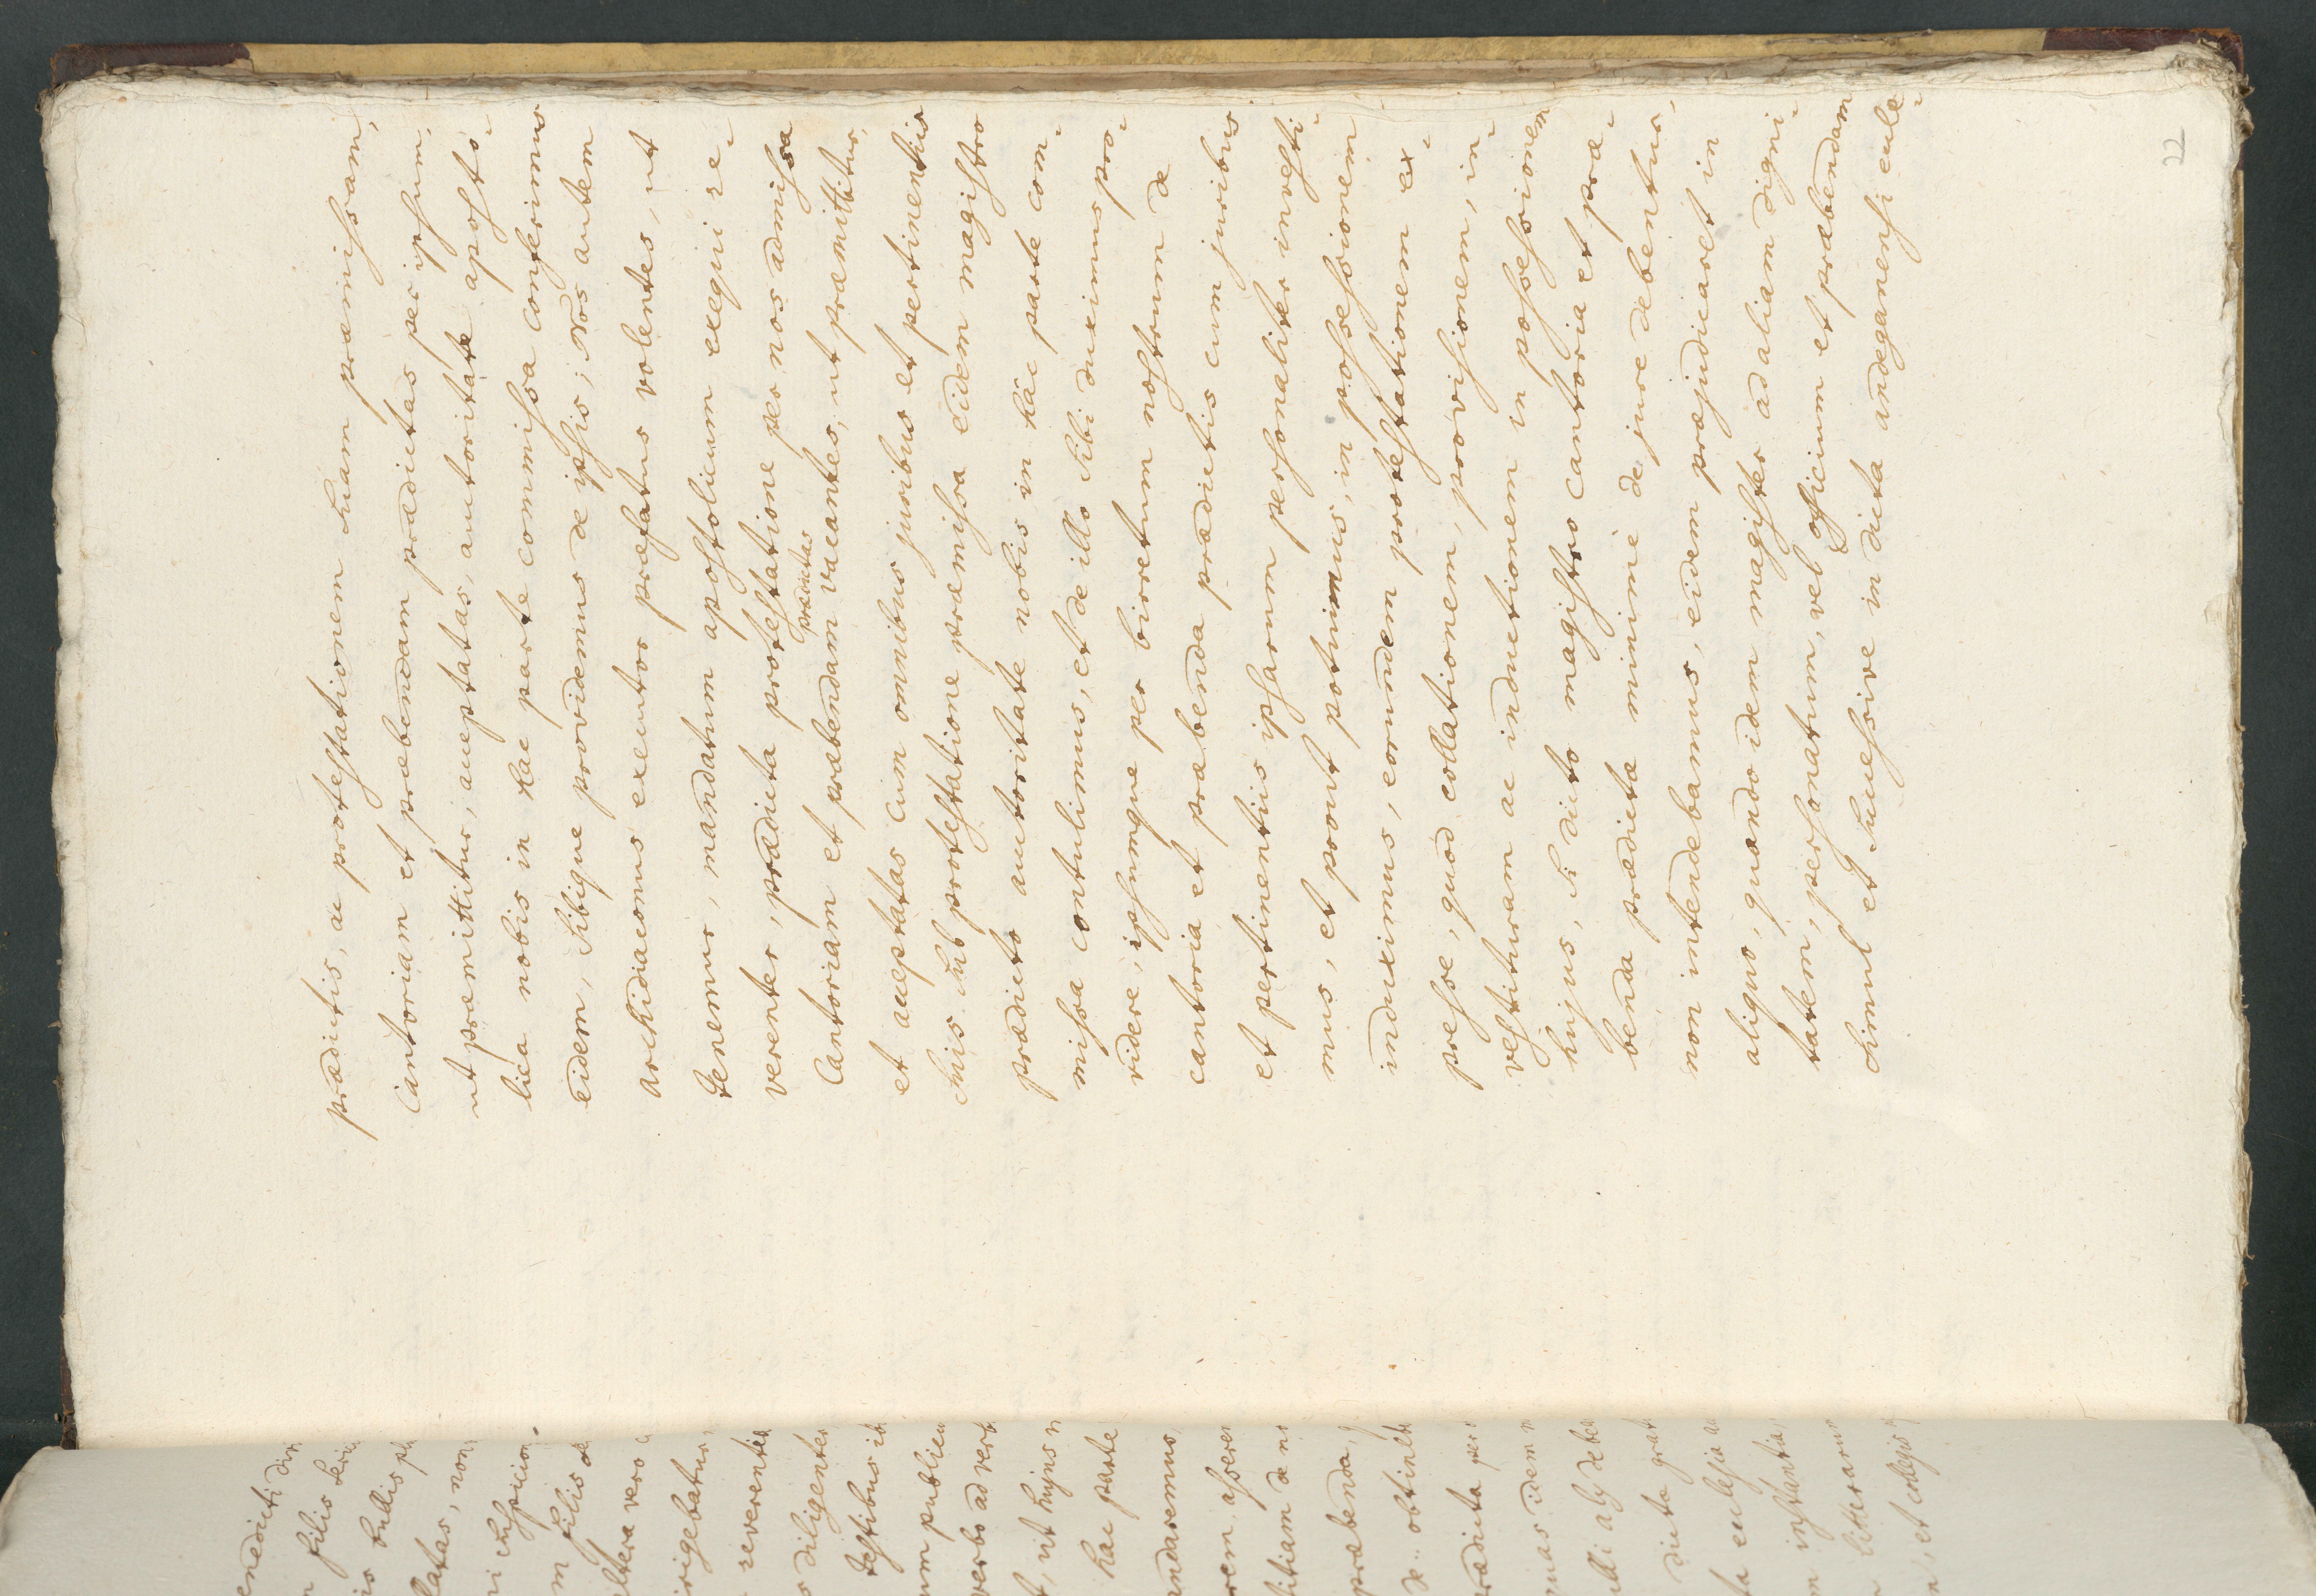 22
prædictis, ac protestationem suam præmissam,
Cantoriam et præbendam prædictas per ipsum,
ut præmittitur, acceptatas, autoritate aposto-
lica nobis in hac parte commissa conferimus
eidem, sibique providemus de ipsis; Nos autem
archidiaconus executor præfatus volentes, ut
tenemur, mandatum apostolicum exequi re-
verenter, prædicta protestatione per nos admissa
Cantoriam et præbendam prædictas vacantes, ut præmittitur,
et acceptatas cum omnibus juribus et pertinentiis
suis sub protestatione præmissa eidem magistro
prædicto auctoritate nobis in hâc parte com-
missa contulimus, et de illo sibi duximus pro-
videre, ipsumque per birretum nostrum de
cantoria et præbenda prædictis cum juribus
et pertinentiis ipsarum personaliter investi-
mus, et prout potuimus, in possessionem
induximus, eorumdem protestationem ex-
presse, quod collationem, provisionem, in-
vestituram ac inductionem in possessionem
hujus, si dicto magistro cantoria et præ-
benda prædictæ minimè de jure debentur,
non intendebamus, eidem præjudicaret in
aliquo, quando idem magister ad aliam digni-
tatem, personatum, vel officium et præbendam
simul et successive in dicta andeganensi eccle-
enedicti
filis
bullis
latas, non
suspicion
filis de
altera vero
irigebatur,
reverenter
diligenter
testibus
um publicu
verbo advert
t, ut hujus
hac parte
andaremus,
rem, asserer
titiam de
præbenda,
de obtinebt
rædicta per
quas idem
alij debe
dicta grat
ta ecclesia
m instanta,
litterarum
n, et collegis